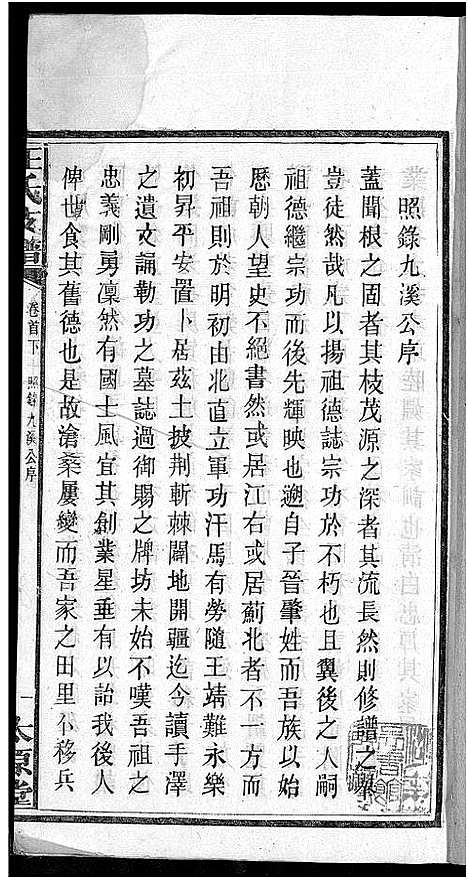 照錄九溪公序
蓋聞根之固者其枝茂源之深者其流長然則修譜之舉
豈徒然哉凡以揚祖德誌宗功於不朽也且翼後之人嗣
祖德繼宗功而後先輝映也遡自子晉肇姓而吾族以始
歷朝人望史不絕書然或居江右或居薊北者不一方
吾祖則於明初由北直立軍功汗馬有勞隨王靖難永樂
初昇平安置卜居茲土披荆斬棘闢地開疆迄今讀手澤
之遺文誦勒功之墓誌過御賜之牌坊未始不嘆吾祖之
忠義剛勇凜然有國士風宜其創業垂有以詒我後人
俾世食其舊德也是故滄桑屢變而吾家之田里不移兵
王氏支譜
卷首下
照錄九溪公序
一
太原堂